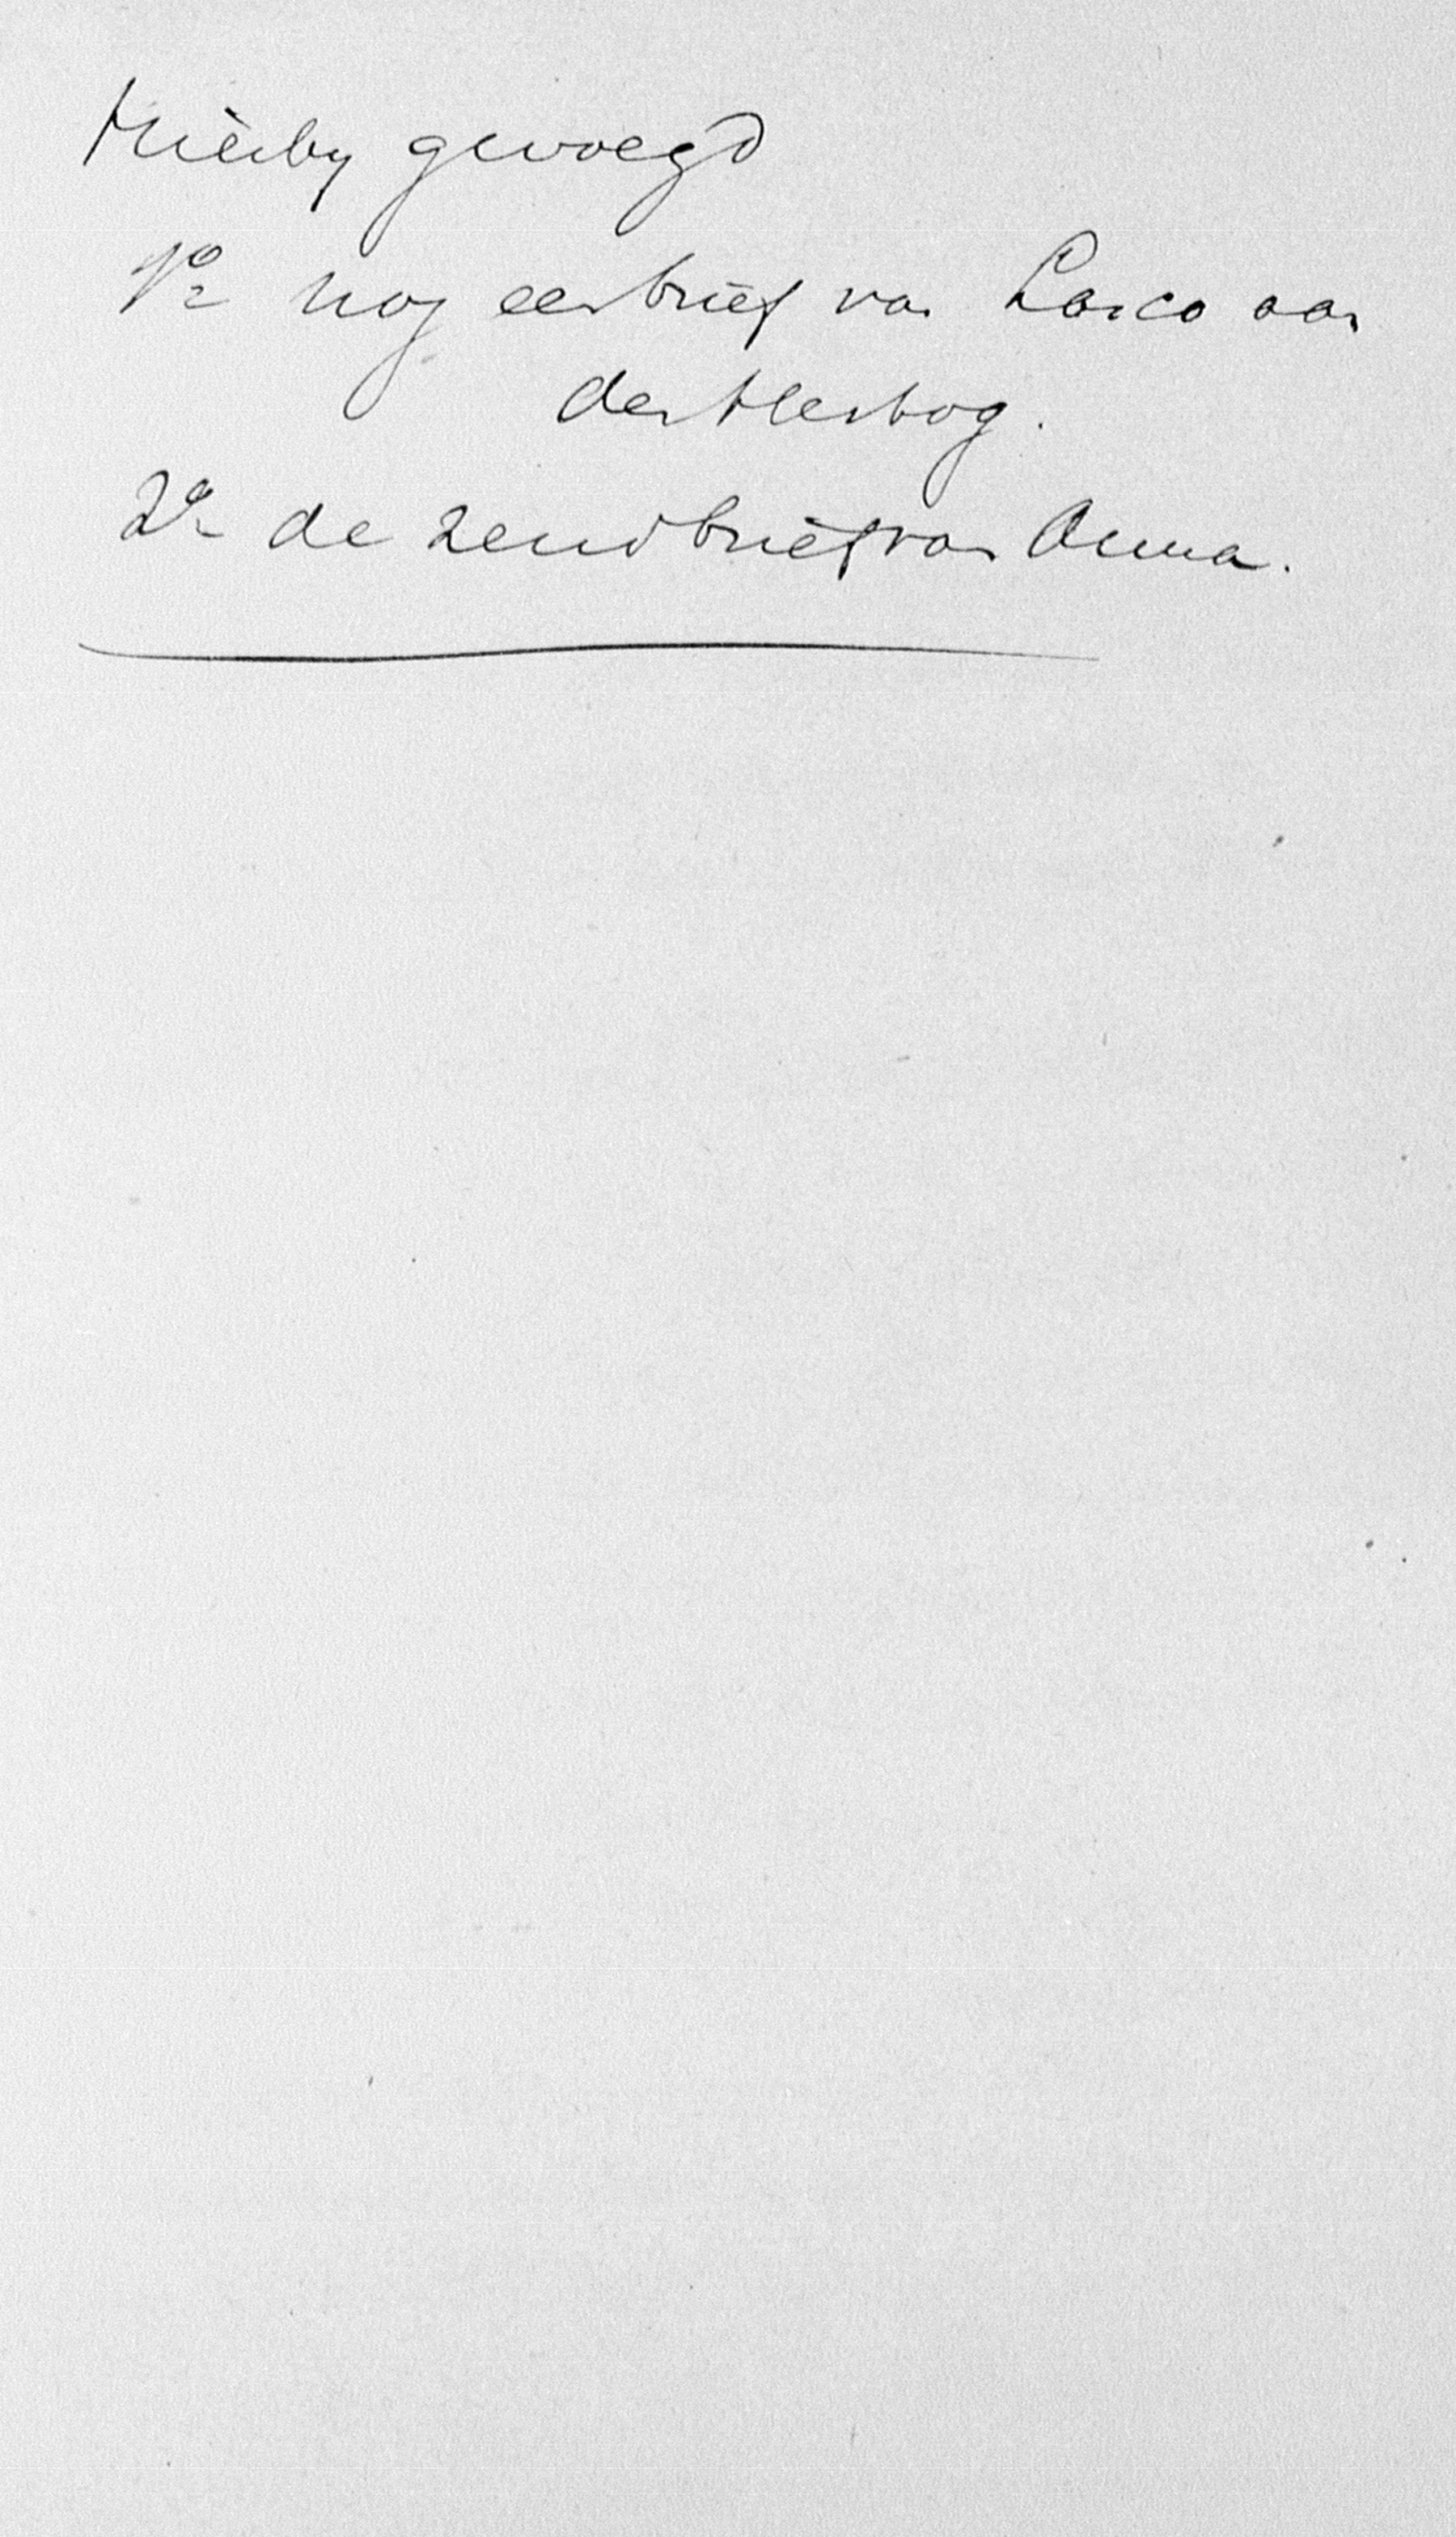 Hierby gevoegd
1º nog een brief van Lasco aan
den Hertog.
2º de zendbrief van Anna.